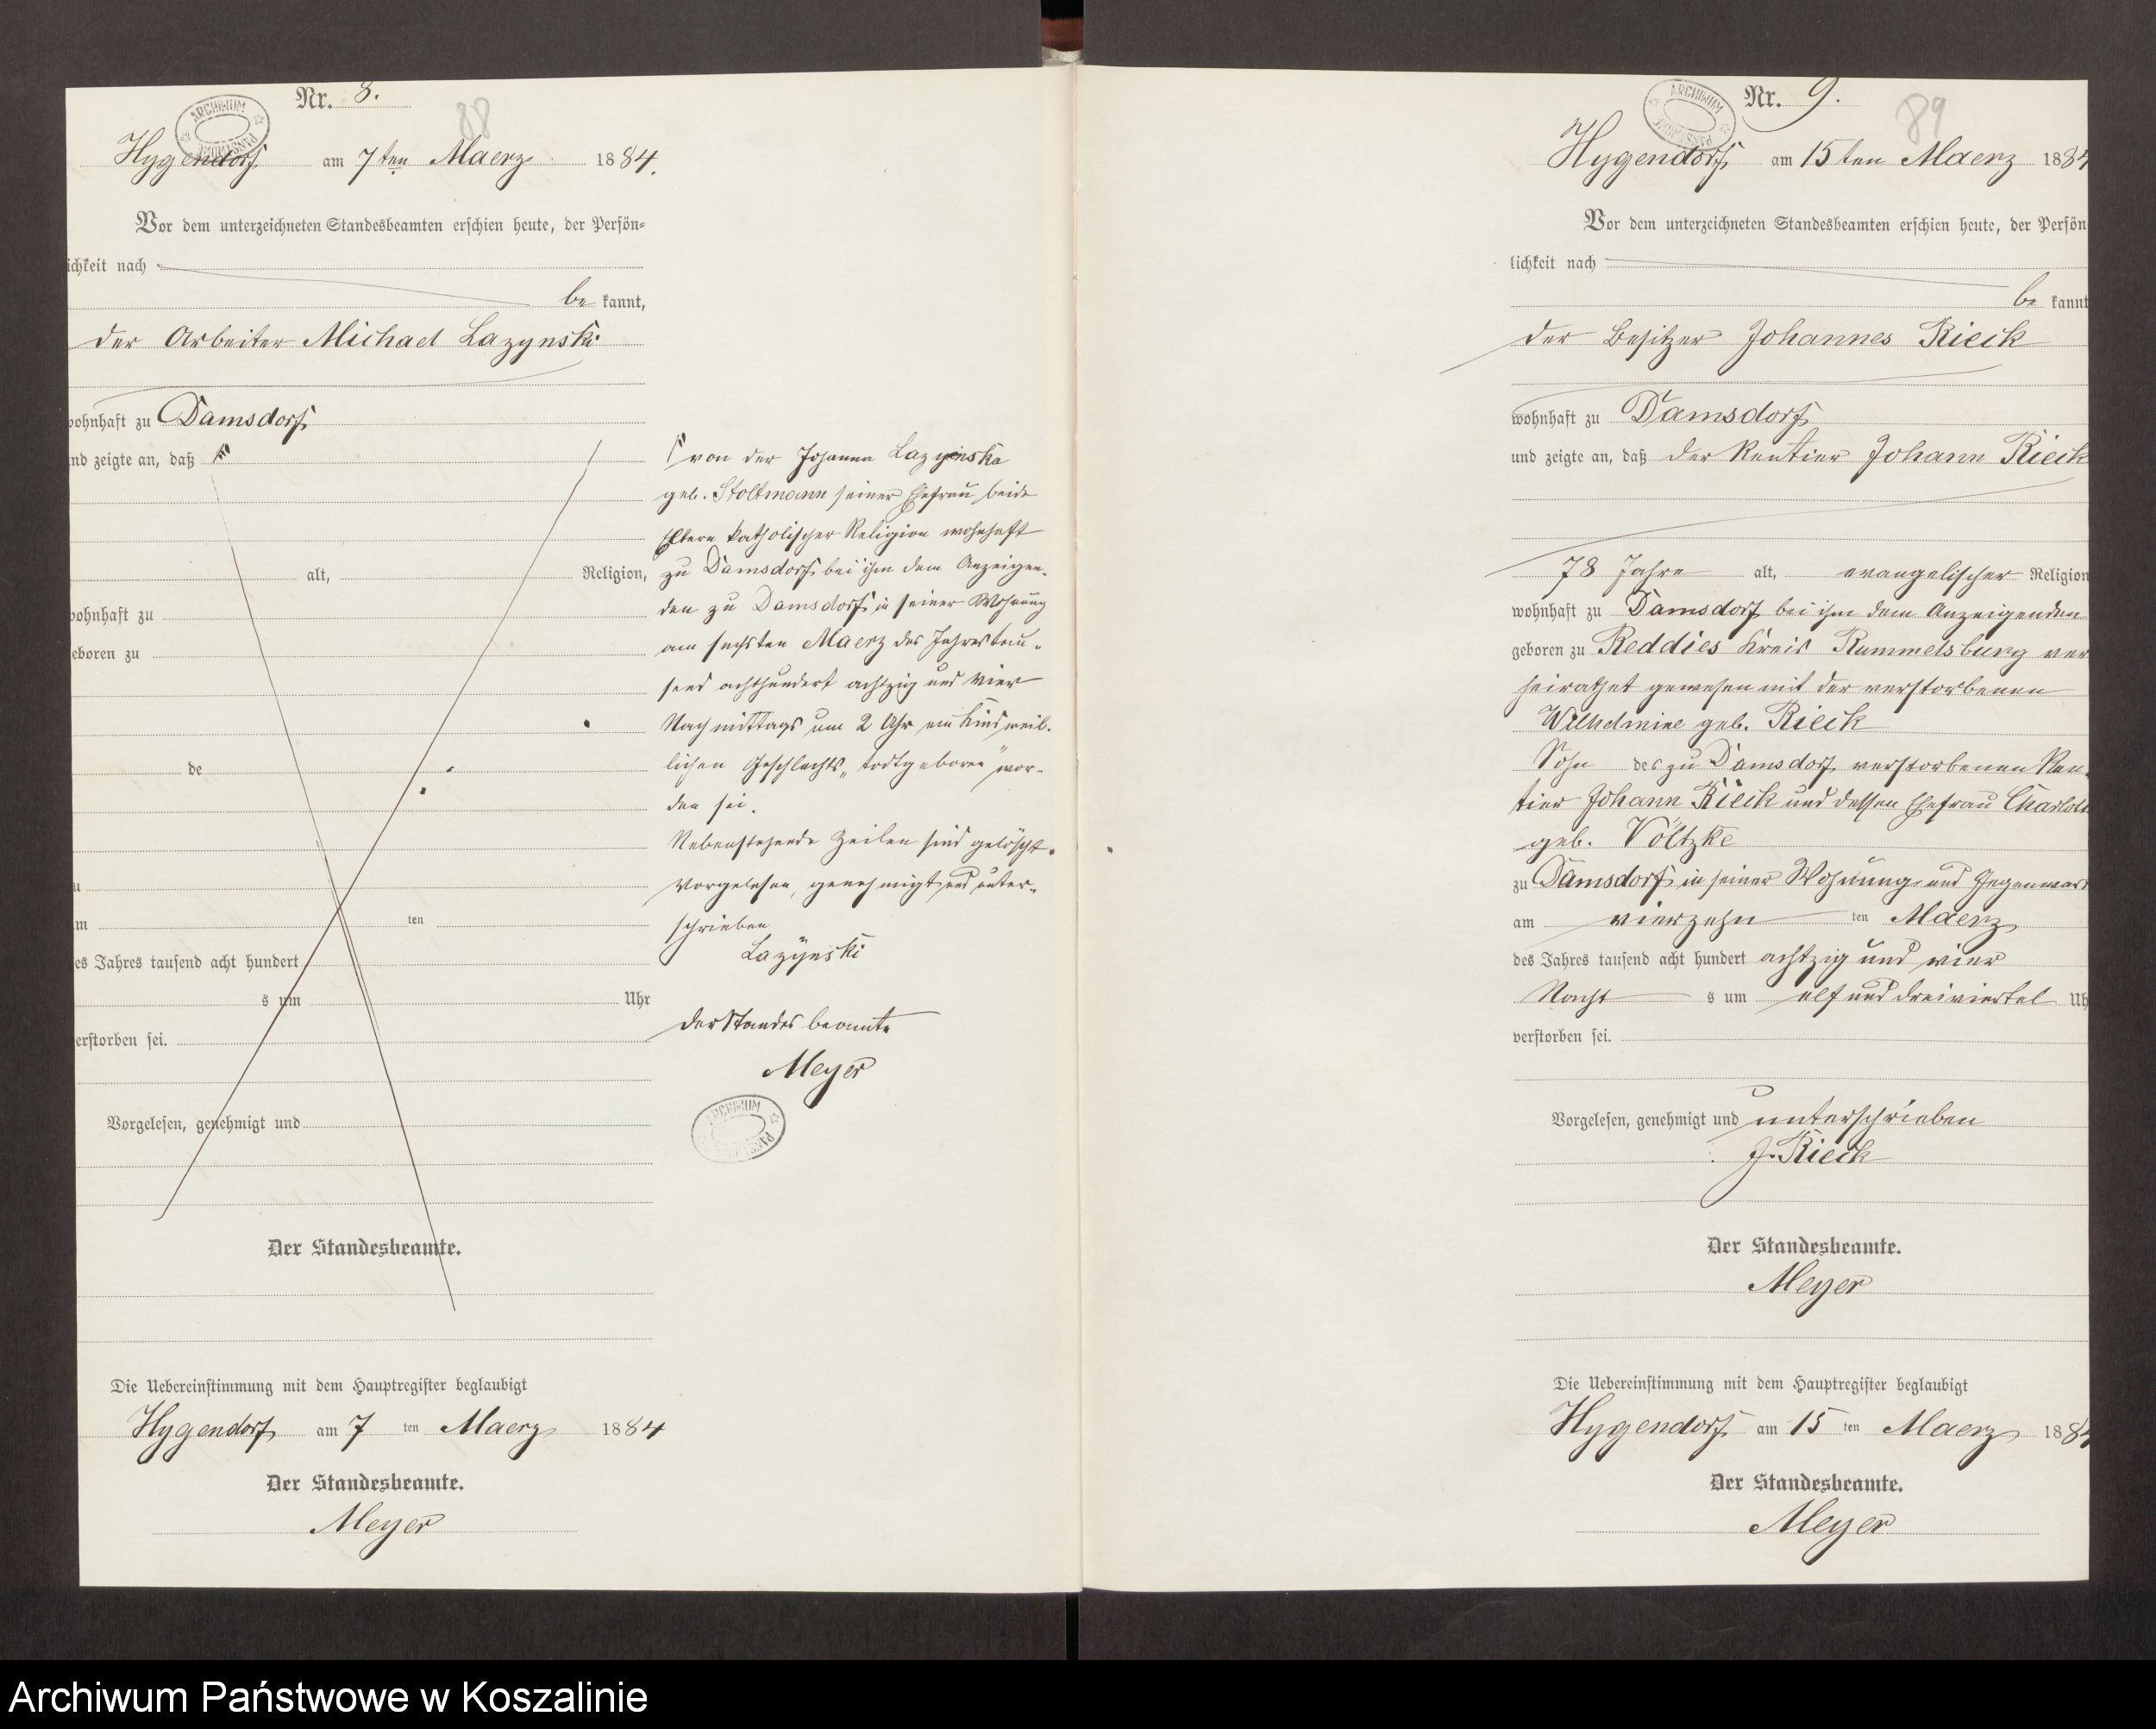 Nr. 8.
88
ARCHIWUM PAŃSTWOWE
Hygendorf am 7ten Maerz 1884.
Vor dem unterzeichneten Standesbeamten erschien heute, der Persön-
ichkeit nach
be kannt,
der Arbeiter Michael Lazynski
wohnhaft zu Damsdorf
nd zeigte an, daß
alt, Religion,
wohnhaft zu
eboren zu
de
u
m ten
es Jahres tausend acht hundert
s um Uhr
erstorben sei.
Vorgelesen, genehmigt und
Der Standesbeamte.
von der Johanna Lazynska
geb. Stoltmann seiner Ehefrau beide
Eltern katholischer Religion wohnhaft
zu Damsdorf bei ihm dem Anzeigen-
den zu Damsdorf in seiner Wohnung
am sechsten Maerz des Jahres tau-
send achthundert achtzig und vier
Nachmittags um 2 Uhr ein Kind weib-
lichen Geschlechts „todtgeboren" wor-
den sei.
Nebenstehende Zeilen sind gelöscht.
Vorgelesen, genehmigt und unter-
schrieben
Lazynski
Der Standesbeamte
Meyer
ARCHIWUM PAŃSTWOWE
Die Uebereinstimmung mit dem Hauptregister beglaubigt
Hygendorf am 7 ten Maerz 1884
Der Standesbeamte.
Meyer
Nr. 9.
89
ARCHIWUM PAŃSTWOWE
Hygendorf am 15ten Maerz 1884
Vor dem unterzeichneten Standesbeamten erschien heute, der Persön
lichkeit nach
be kannt
der Besitzer Johannes Rieck
wohnhaft zu Damsdorf
und zeigte an, daß der Rentier Johann Rieck
78 Jahre alt, evangelischer Religion
wohnhaft zu Damsdorf bei ihm dem Anzeigenden
geboren zu Reddies Kreis Rummelsburg ver
heirathet gewesen mit der verstorbenen
Wilhelmine geb. Rieck
Sohn des zu Damsdorf verstorbenen Ren-
tier Johann Rieck und dessen Ehefrau Charlott
geb. Völtzke
zu Damsdorf in seiner Wohnung und Gegenwart
am vierzehn ten Maerz
des Jahres tausend acht hundert achtzig und vier
Nacht s um elf und dreiviertel Uh
verstorben sei.
Vorgelesen, genehmigt und unterschrieben
J. Rieck
Der Standesbeamte.
Meyer
Die Uebereinstimmung mit dem Hauptregister beglaubigt
Hygendorf am 15 ten Maerz 1884
Der Standesbeamte.
Meyer
Archiwum Państwowe w Koszalinie